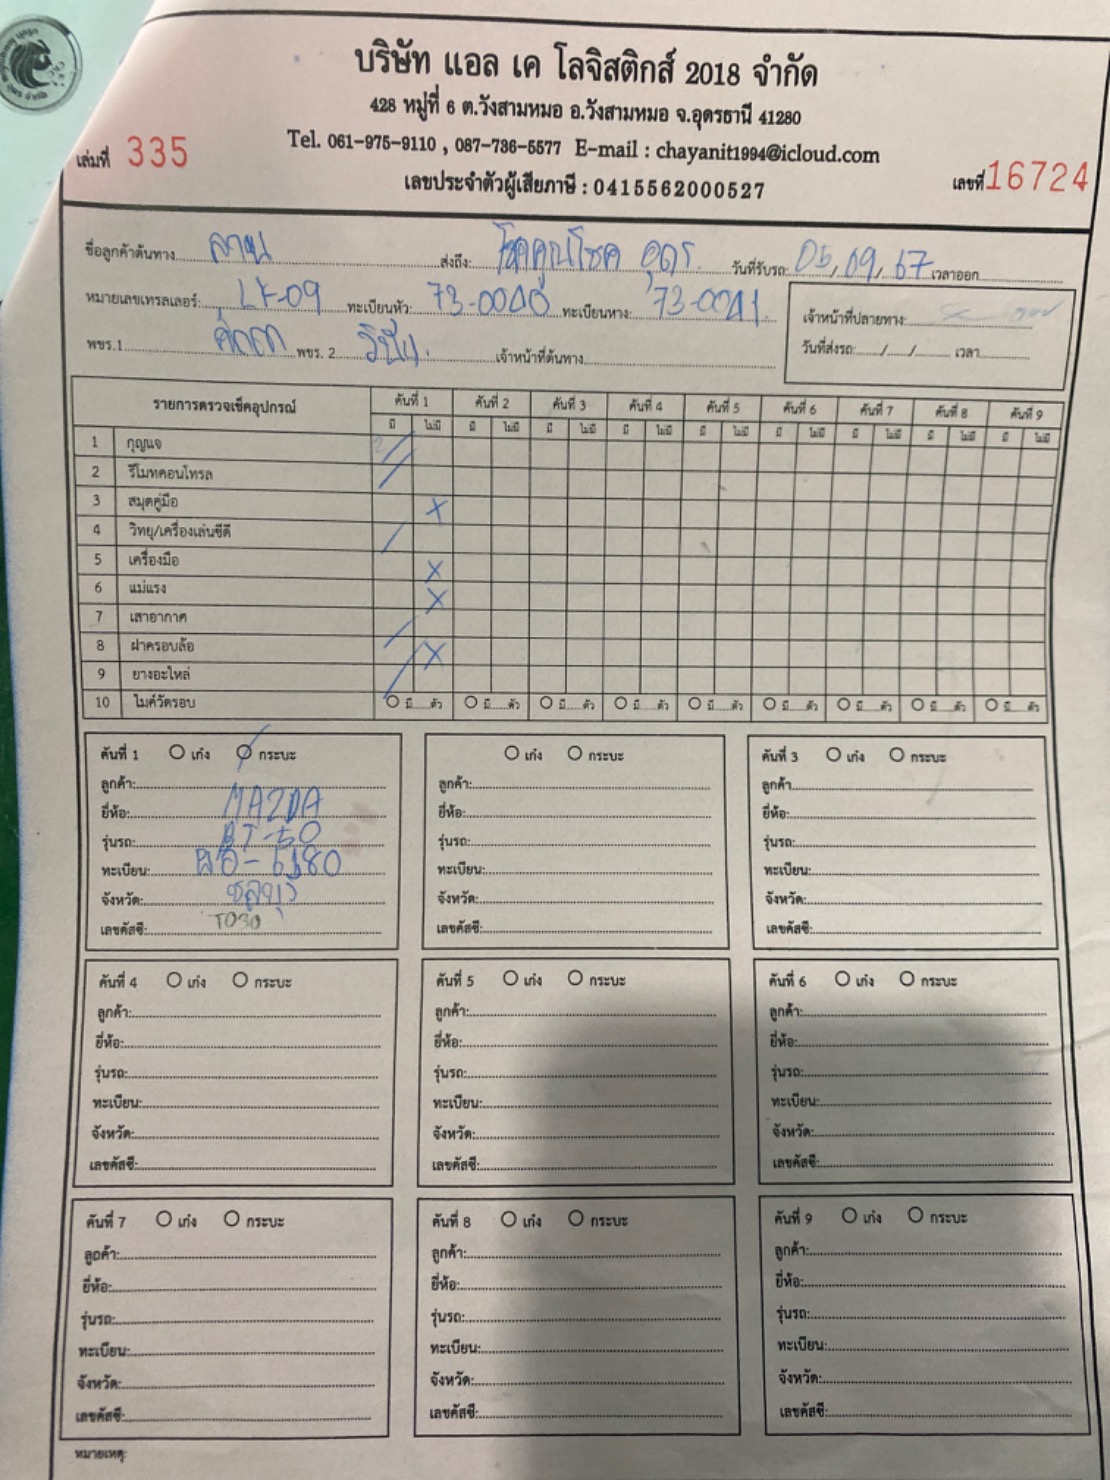 บริษัท แอล เค โลจิสติกส์ 2018 จำกัด
428 หมู่ที่ 6 ต.วังสามหมอ อ.วังสามหมอ จ.อุดรธานี 41280
Tel. 061-975-9110 , 087-736-5577 E-mail : chayanit1994@icloud.com
เลขประจำตัวผู้เสียภาษี : 0415562000527
เล่มที่ 335
เลขที่ 16724
ชื่อลูกค้าต้นทาง ลาน ส่งถึง: โชคคูณโชค อุดร. วันที่รับรถ: 05/09/67 เวลาออก
หมายเลขเทรลเลอร์: LK-09 ทะเบียนหัว: 73-0040 ทะเบียนหาง: 73-0041
พขร.1 พขร. 2 เจ้าหน้าที่ต้นทาง
เจ้าหน้าที่ปลายทาง:
วันที่ส่งรถ:...../...../..... เวลา
รายการตรวจเช็คอุปกรณ์ คันที่ 1 คันที่ 2 คันที่ 3 คันที่ 4 คันที่ 5 คันที่ 6 คันที่ 7 คันที่ 8 คันที่ 9
มี ไม่มี มี ไม่มี มี ไม่มี มี ไม่มี มี ไม่มี มี ไม่มี มี ไม่มี มี ไม่มี มี ไม่มี
1 กุญแจ 2 /
2 รีโมทคอนโทรล /
3 สมุดคู่มือ X
4 วิทยุ/เครื่องเล่นซีดี /
5 เครื่องมือ X
6 แม่แรง X
7 เสาอากาศ /
8 ฝาครอบล้อ X
9 ยางอะไหล่ /
10 ไมค์วัดรอบ มี.....ตัว มี.....ตัว มี.....ตัว มี.....ตัว มี.....ตัว มี.....ตัว มี.....ตัว มี.....ตัว มี.....ตัว
คันที่ 1 เก๋ง กระบะ
ลูกค้า:
ยี่ห้อ: MAZDA
รุ่นรถ: BT-50
ทะเบียน:
จังหวัด: ชลบุรี
เลขคัสซี: T030
เก๋ง กระบะ
ลูกค้า:
ยี่ห้อ:
รุ่นรถ:
ทะเบียน:
จังหวัด:
เลขคัสซี:
คันที่ 3 เก๋ง กระบะ
ลูกค้า
ยี่ห้อ:
รุ่นรถ:
ทะเบียน:
จังหวัด:
เลขคัสซี:
คันที่ 4 เก๋ง กระบะ
ลูกค้า:
ยี่ห้อ:
รุ่นรถ:
ทะเบียน:
จังหวัด:
เลขคัสซี:
คันที่ 5 เก๋ง กระบะ
ลูกค้า:
ยี่ห้อ:
รุ่นรถ:
ทะเบียน:
จังหวัด:
เลขคัสซี:
คันที่ 6 เก๋ง กระบะ
ลูกค้า:
ยี่ห้อ:
รุ่นรถ:
ทะเบียน:
จังหวัด:
เลขคัสซี:
คันที่ 7 เก๋ง กระบะ
ลูกค้า:
ยี่ห้อ:
รุ่นรถ:
ทะเบียน:
จังหวัด:
เลขคัสซี:
คันที่ 8 เก๋ง กระบะ
ลูกค้า:
ยี่ห้อ:
รุ่นรถ:
ทะเบียน:
จังหวัด:
เลขคัสซี:
คันที่ 9 เก๋ง กระบะ
ลูกค้า:
ยี่ห้อ:
รุ่นรถ:
ทะเบียน:
จังหวัด:
เลขคัสซี:
หมายเหตุ: